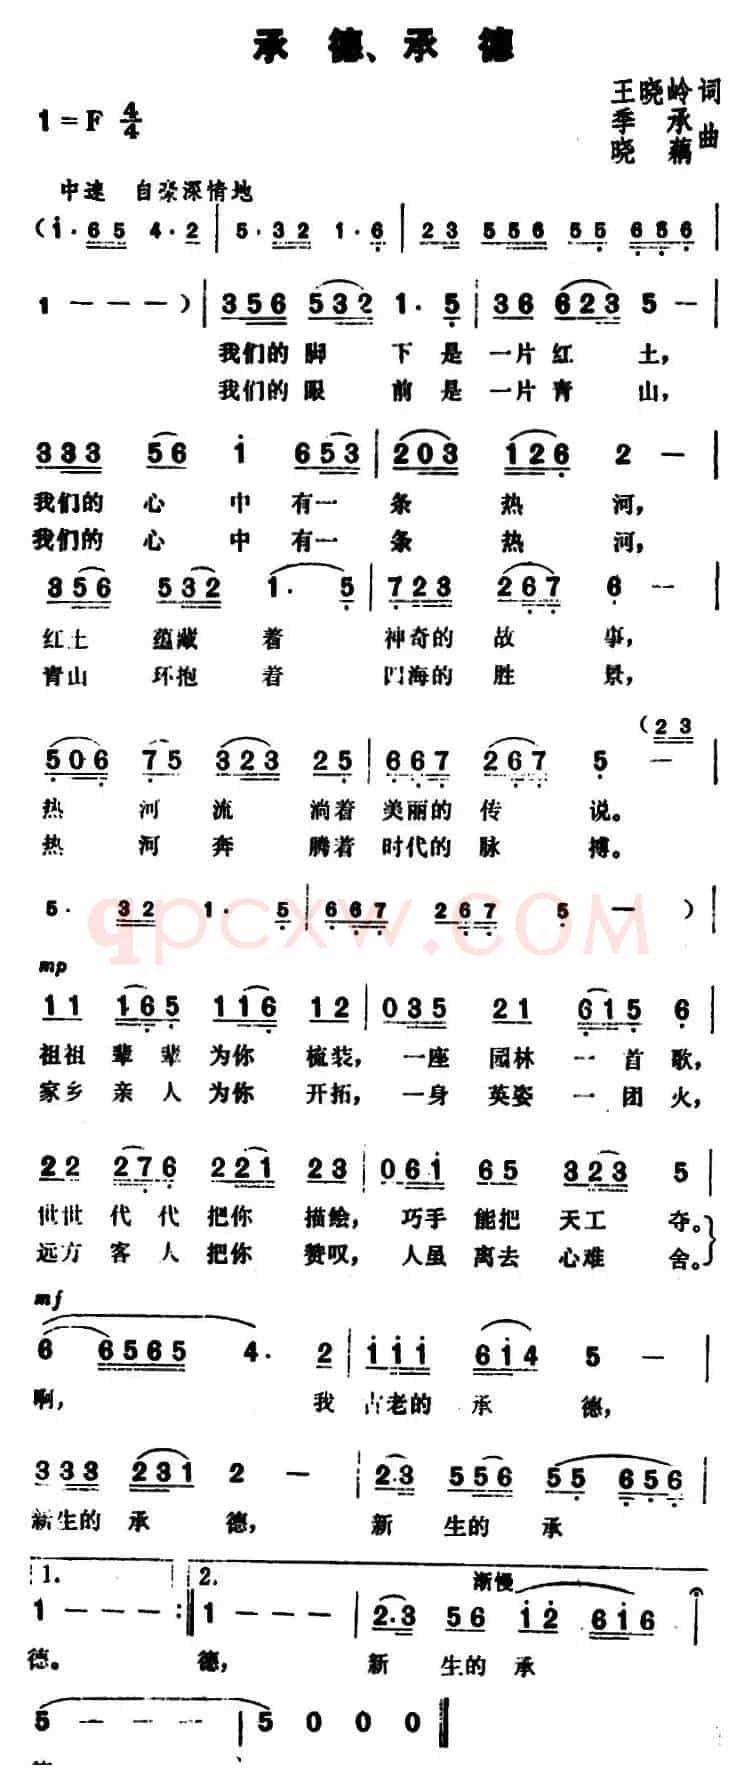 承德、承德
王晓岭词
1=F 4/4
季承
晓藕 曲
中速 自豪深情地
(i·65 4·2 | 5·32 1·6 | 23 556 55 656 |
1 - - - ) | 356 532 1·5 | 36 623 5 - |
我们的脚下是一片红土,
我们的眼前是一片青山,
333 56 i 653 | 203 126 2 - |
我们的心中有一条热河,
我们的心中有一条热河,
356 532 1·5 | 723 267 6 - |
红土蕴藏着神奇的故事,
青山环抱着四海的胜景,
(23
506 75 323 25 | 667 267 5 - |
热河流淌着美丽的传说。
热河奔腾着时代的脉搏。
5·32 1·5 | 667 267 5 - ) |
qpcxw.COM
mp
11 165 116 12 | 035 21 615 6 |
祖祖辈辈为你梳装,一座园林一首歌,
家乡亲人为你开拓,一身英姿一团火,
22 276 221 23 | 06i 65 323 5 |
世世代代把你描绘,巧手能把天工夺。
远方客人把你赞叹,人虽离去心难舍。
mf
6 6565 4·2 | iii 6i4 5 - |
啊,我古老的承德,
333 231 2 - | 2·3 556 55 656 |
新生的承德,新生的承
1. 2. 渐慢
1 - - - :‖ 1 - - - | 2·3 56 i2 6i6 |
德。德,新生的承
5 - - - | 5 0 0 0 ‖